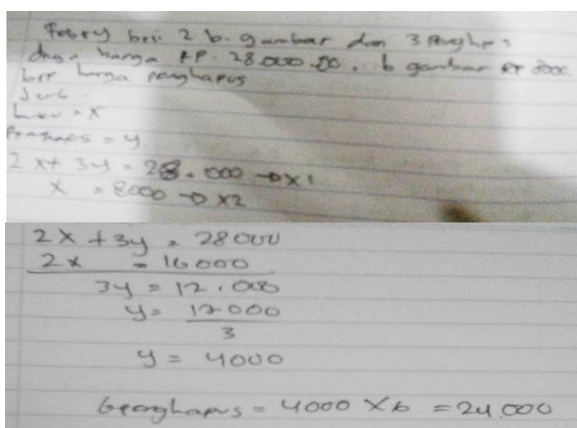 Febry beli 2 b. gambar dan 3 Penghps
dngn harga RP. 28.000.00. b gambar RP 8000
brp harga penghapus
Jwb.
= x
Penghapus = y
2x + 3y = 28.000 → x1
x = 8000 → x2
2x + 3y = 28000
2x = 16000
3y = 12.000
y = 12000
3
y = 4000
6 penghapus = 4000 x 6 = 24.000